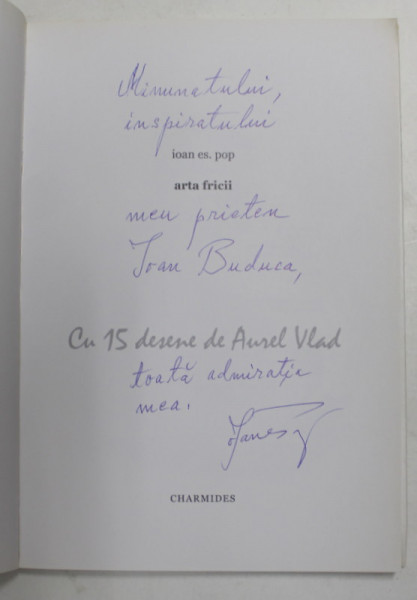 Minunatului,
inspiratului
ioan es. pop
arta fricii
meu prieten
Ioan Buduca,
Cu 15 desene de Aurel Vlad
toată admirația
mea.
CHARMIDES